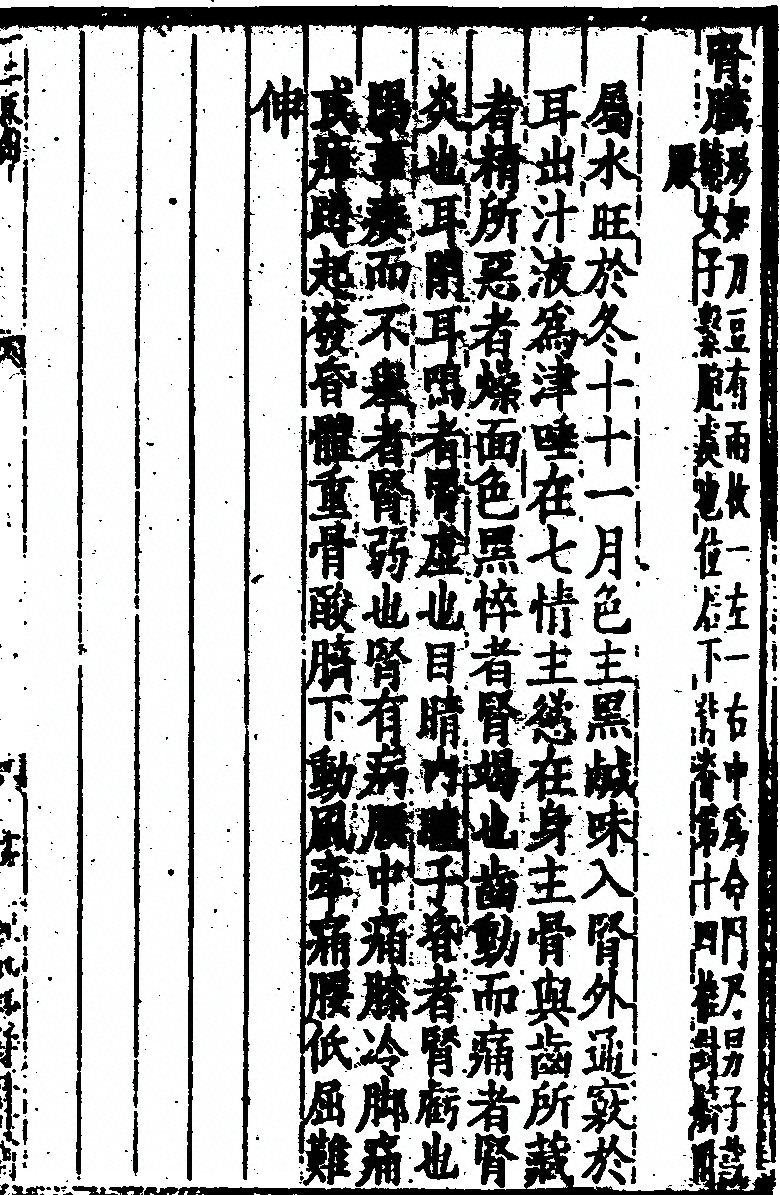 腎臟形如刀豆有兩枚一左一右中爲命門乃男子藏
精女子繫胞處也位居下背脊第十四椎對臍
腰
屬水旺於冬十十一月色主黑鹹味入腎外通竅於
耳出汁液爲津唾在七情主慾在身主骨與齒所藏
者精所惡者燥面色黑悴者腎竭也齒動而痛者腎
炎也耳閉耳鳴者腎虛也目睛內瞳子昏者腎虧也
陽事痿而不舉者腎弱也腎有病腰中痛膝冷脚痛
或痺蹲起發昏體重骨酸臍下動風牽痛腰低屈難
伸